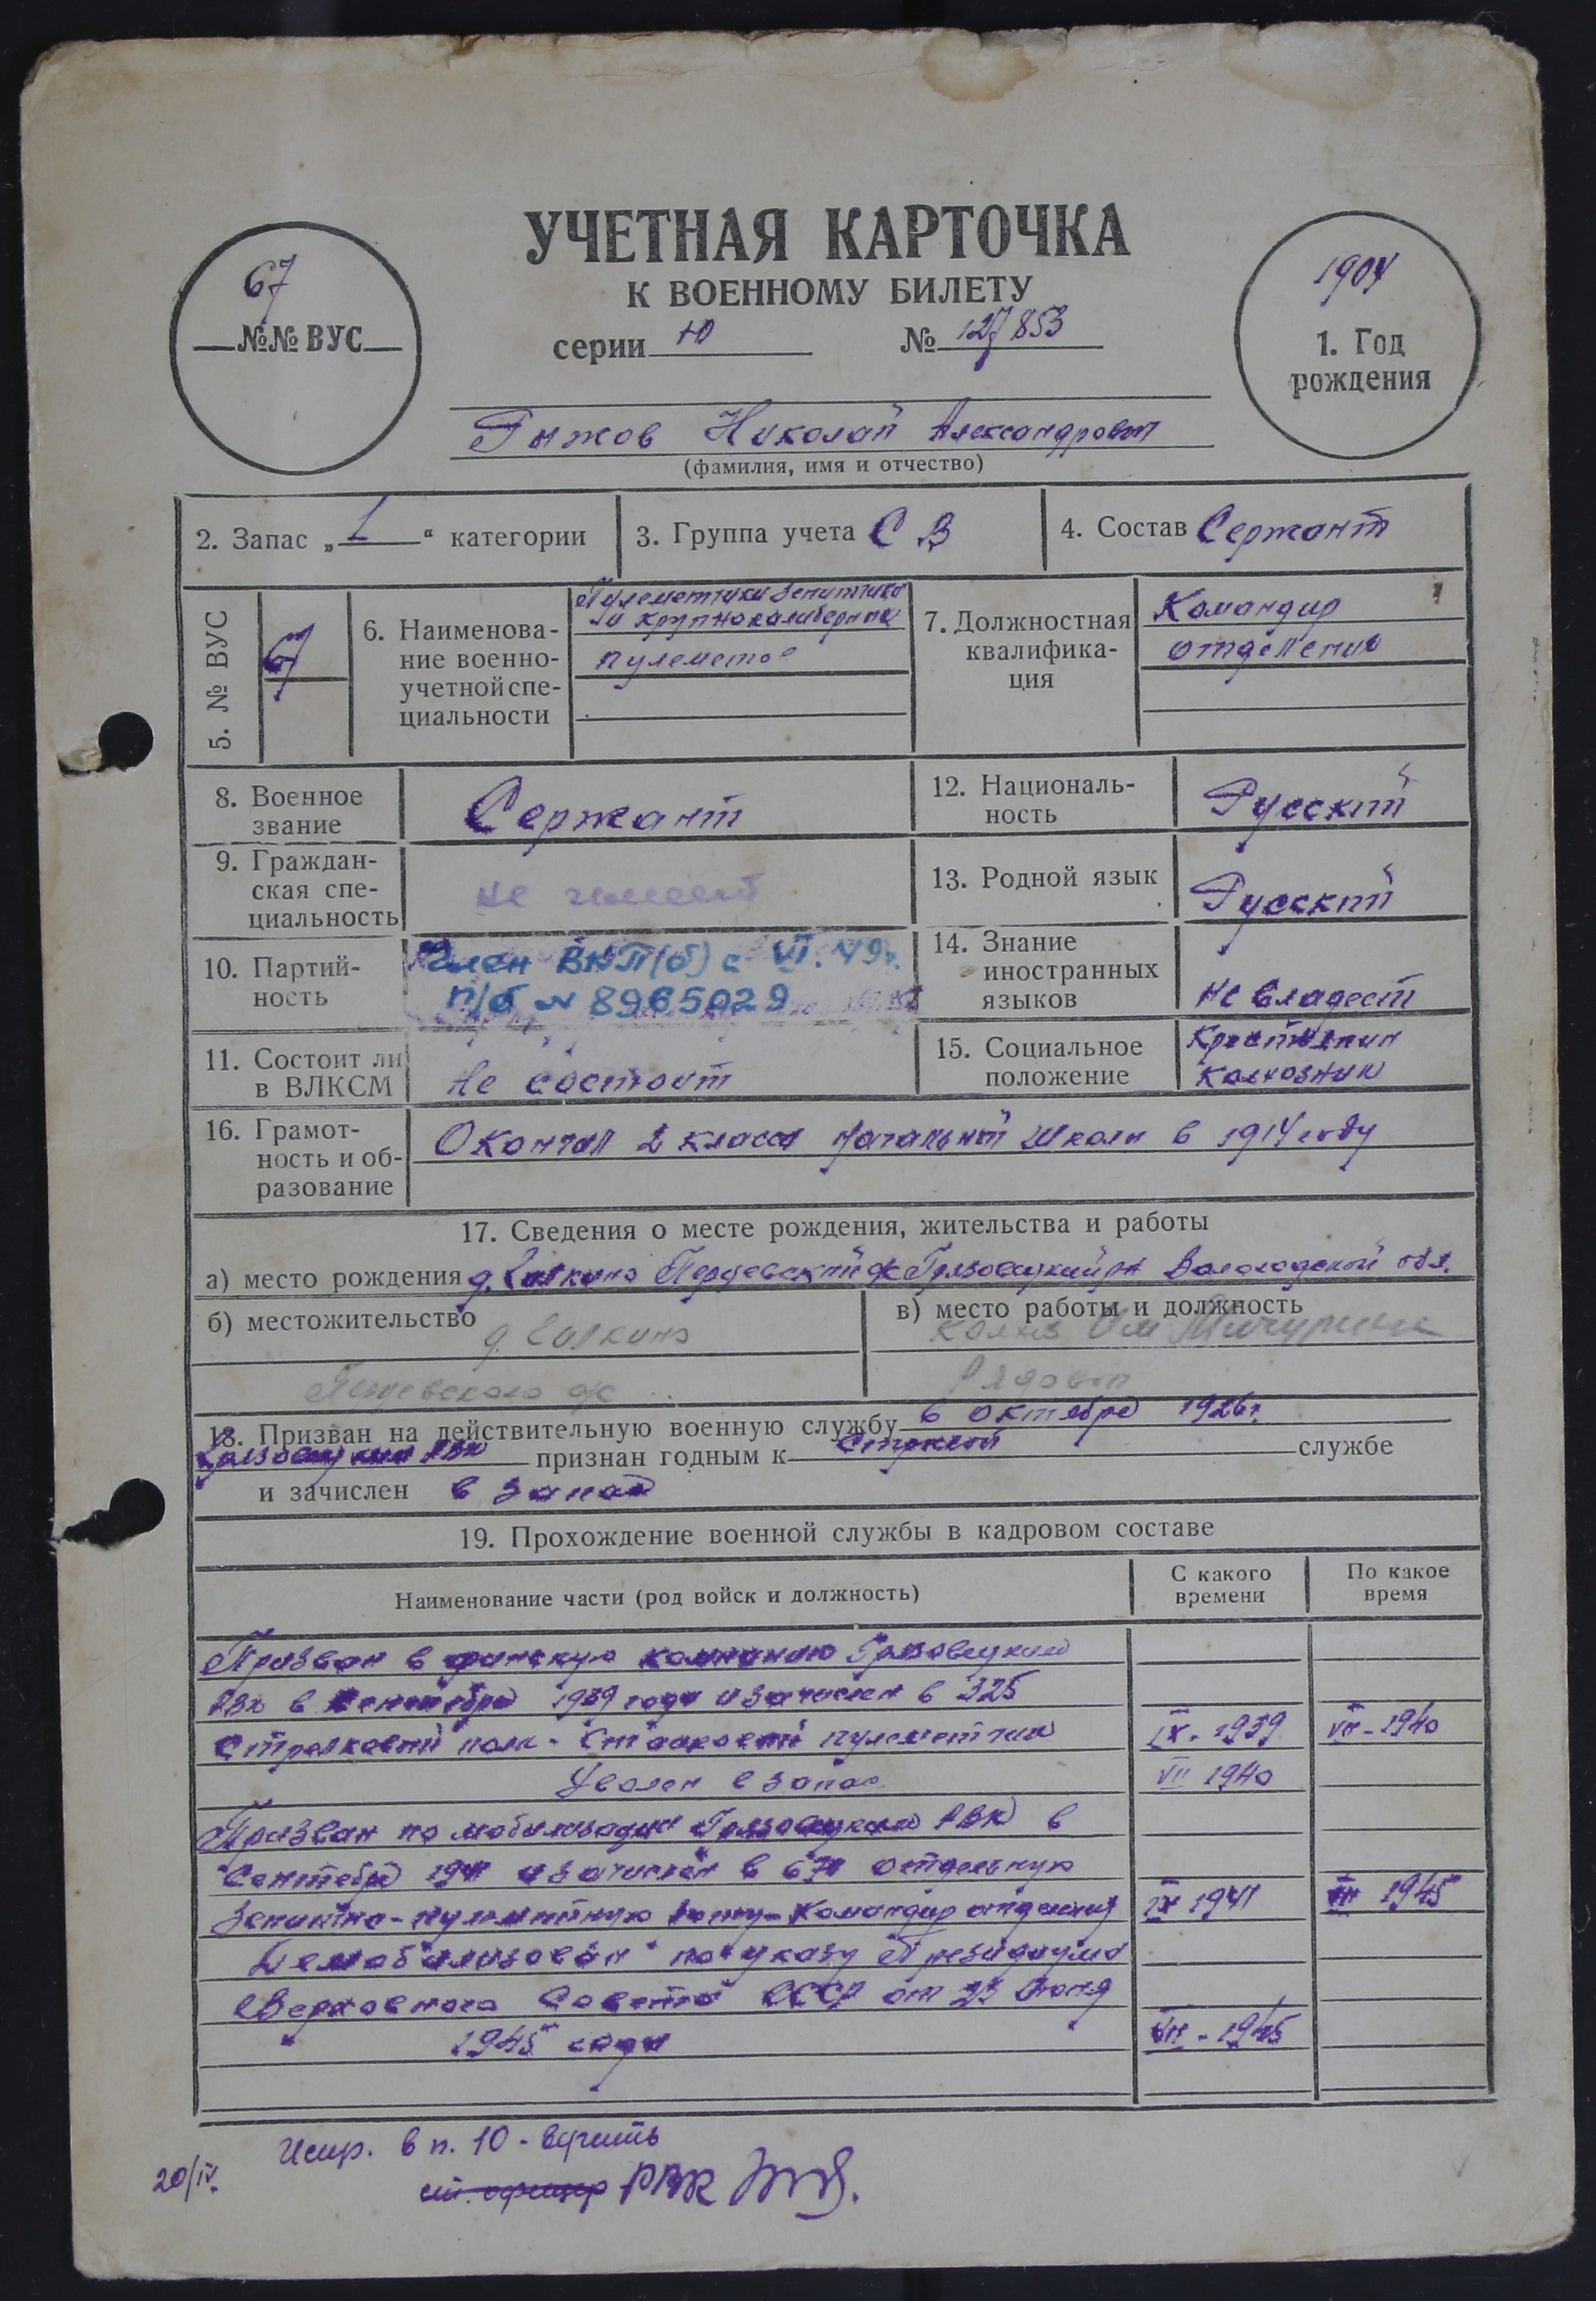 УЧЕТНАЯ КАРТОЧКА
К ВОЕННОМУ БИЛЕТУ
серии Ю № 127853
67
№№ ВУС
1904
1. Год
рождения
Рыжов Николай Александрович
(фамилия, имя и отчество)
2. Запас „1“ категории
3. Группа учета С В
4. Состав Сержант
5. № ВУС
67
6. Наименова-
ние военно-
учетной спе-
циальности
Пулеметчики зенитных
и крупнокалиберных
пулеметов
7. Должностная
квалифика-
ция
Командир
отделения
8. Военное
звание
Сержант
12. Националь-
ность
Русский
9. Граждан-
ская спе-
циальность
не имеет
13. Родной язык
Русский
10. Партий-
ность
Член ВКП(б) с VI. 49г.
п/б № 8965029
14. Знание
иностранных
языков
не владеет
11. Состоит ли
в ВЛКСМ
не состоит
15. Социальное
положение
Крестьянин
колхозник
16. Грамот-
ность и об-
разование
Окончил 2 класса начальной школы в 1914 году
17. Сведения о месте рождения, жительства и работы
а) место рождения д. Перцевский с/с Грязовецкий р-н Вологодской обл.
б) местожительство
д.
Перцевского с/с
в) место работы и должность
колхоз Им Мичурина
Рядовой
18. Призван на действительную военную службу в октябре 1926г.
Грязовецким РВК признан годным к строевой службе
и зачислен в запас
19. Прохождение военной службы в кадровом составе
Наименование части (род войск и должность)
С какого
времени
По какое
время
Призван в финскую компанию Грязовецким
РВК в сентябре 1939 года и зачислен в 325
Стрелковый полк - Станковый пулеметчик IX - 1939 VII - 1940
Уволен в запас VII 1940
Призван по мобилизации Грязовецким РВК в
Сентябре 1941 и зачислен в отдельную
Зенитно-пулеметную роту - Командир отделения IX 1941 1945
Демобилизован по указу Президиума
Верховного Совета СССР от 23 Июня
1945 года 1945
Испр. в п. 10 - верить
20/IV.
РВК